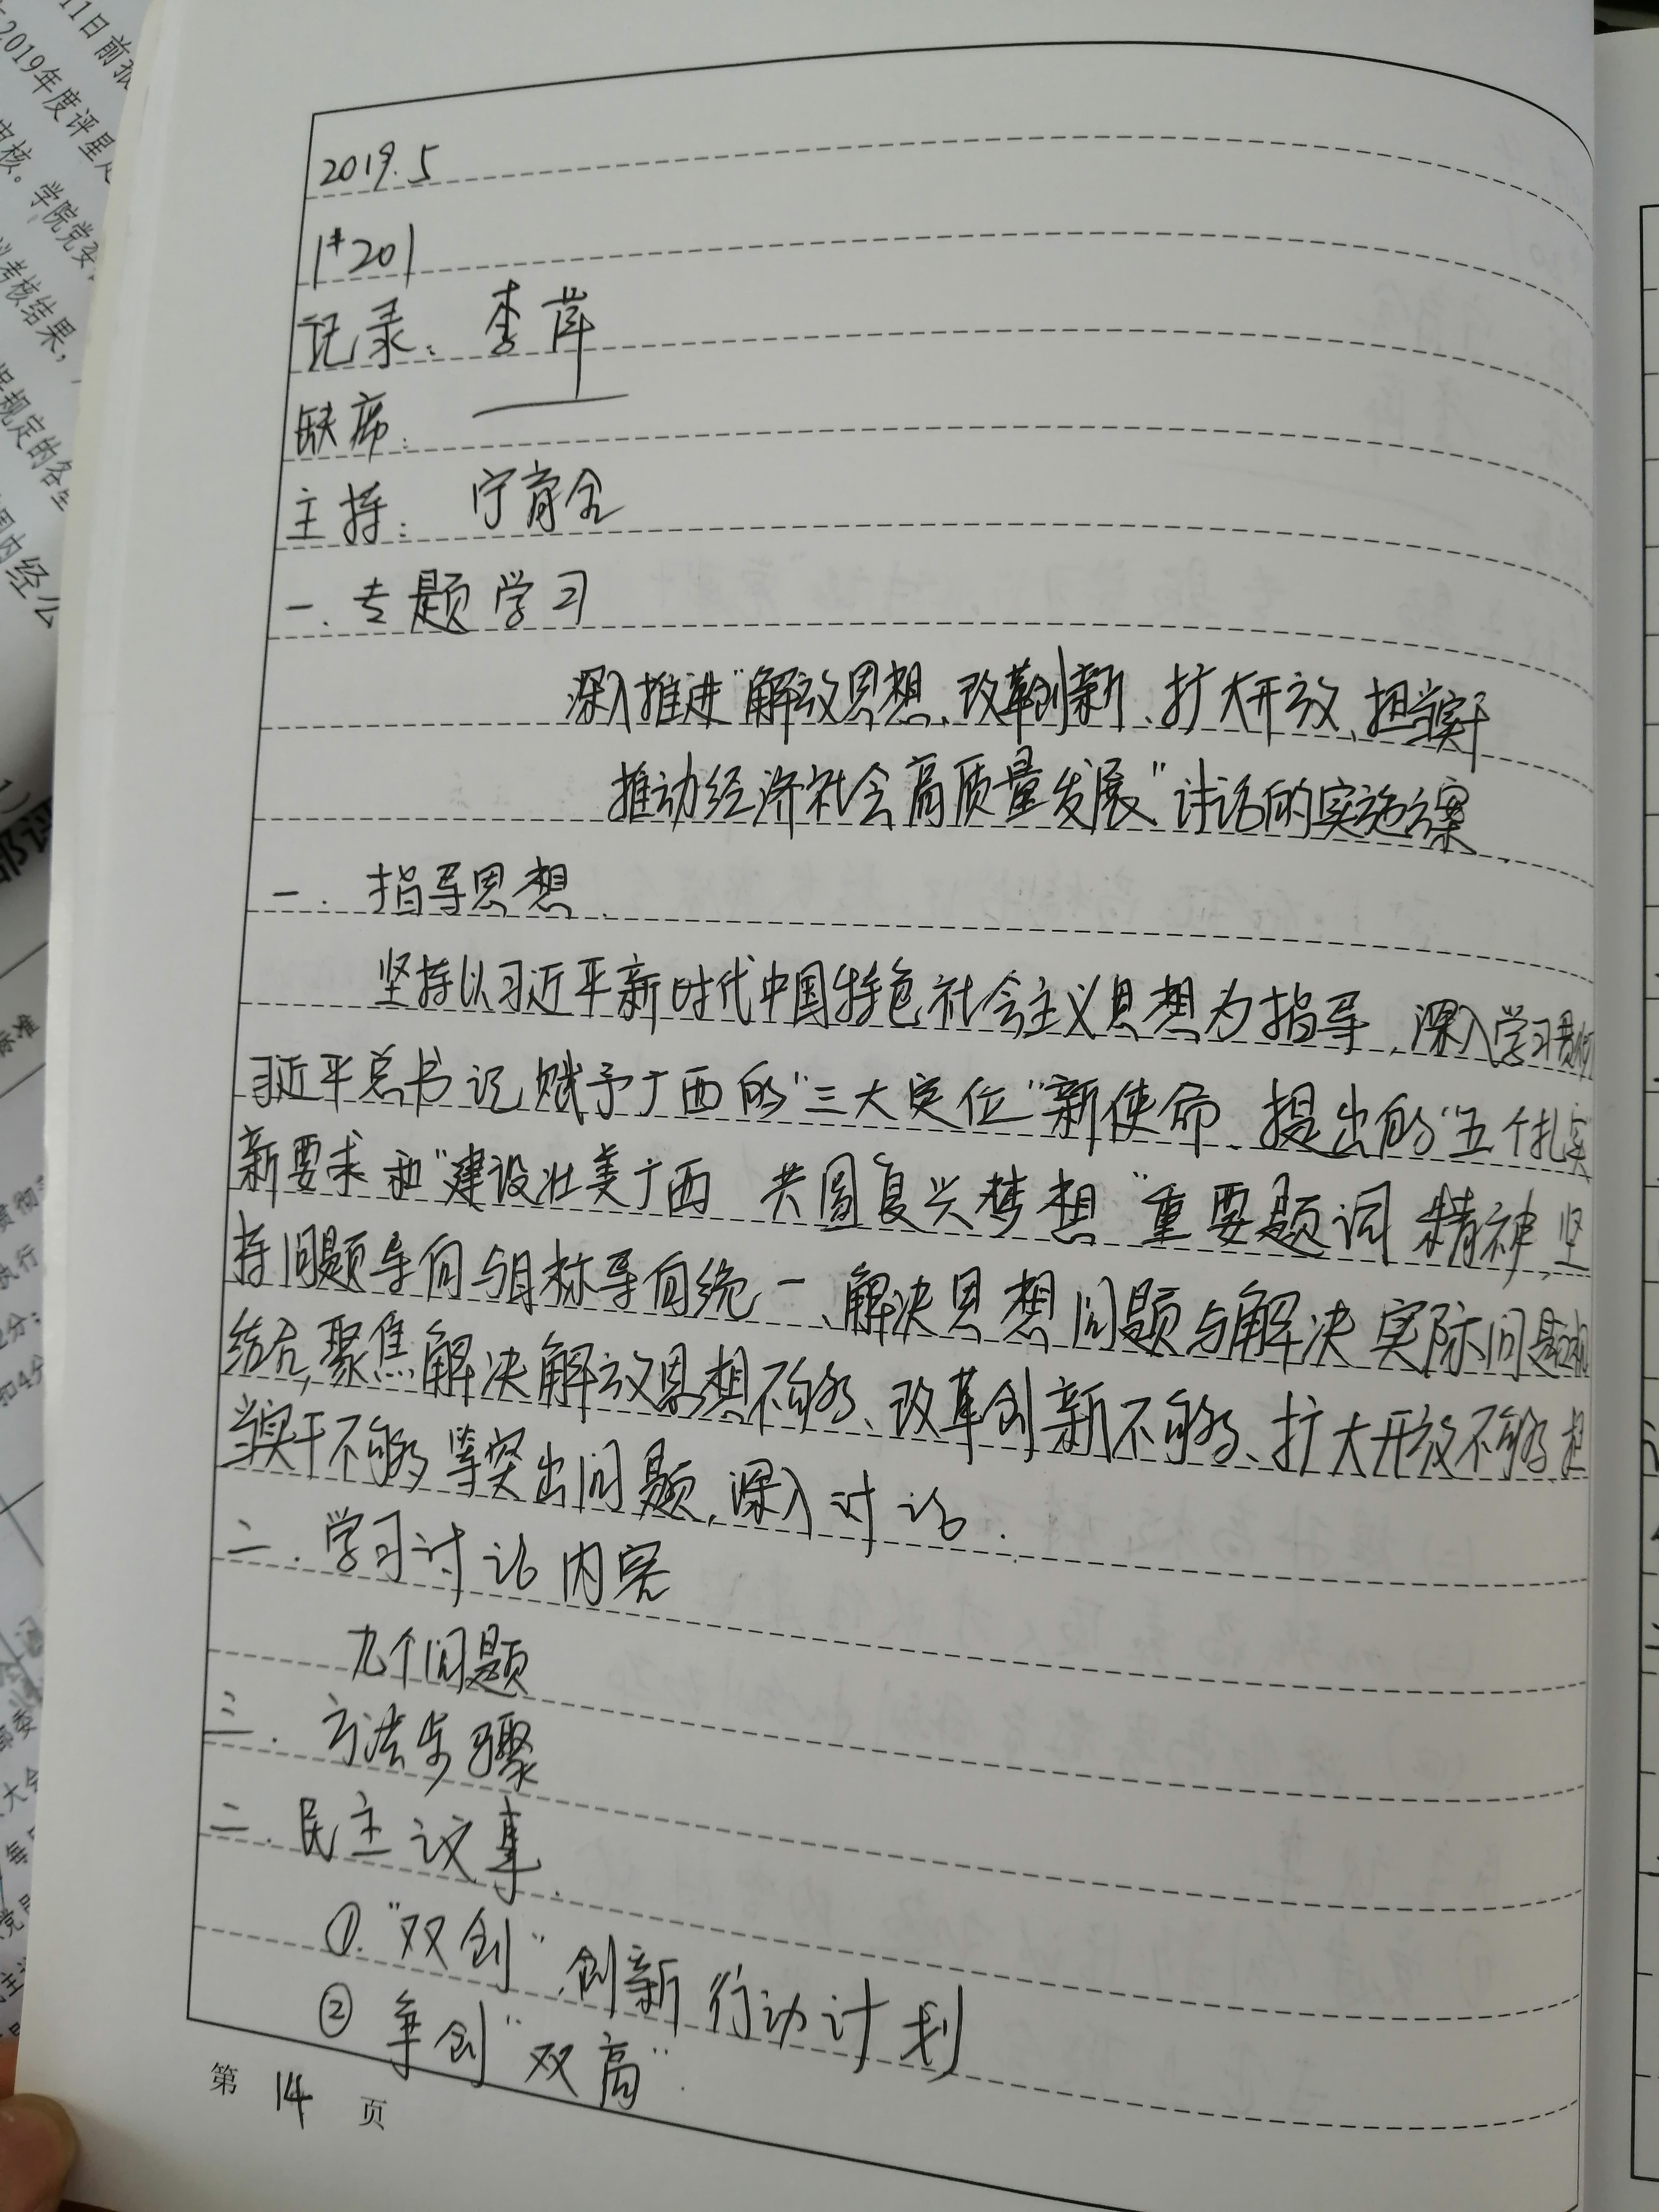 2019.5
1#201
记录：李萍
缺席：
主持：宁育全
一.专题学习
深入推进"解放思想、改革创新、扩大开放、担当实干
推动经济社会高质量发展"讨论的实施方案
一.指导思想
坚持以习近平新时代中国特色社会主义思想为指导，深入学习贯彻
习近平总书记赋予广西的"三大定位"新使命、提出的"五个扎实
新要求和"建设壮美广西 共圆复兴梦想"重要题词精神，坚
持问题导向与目标导向统一、解决思想问题与解决实际问题相
结合，聚焦解决解放思想不够、改革创新不够、扩大开放不够 担
当实干不够等突出问题，深入讨论.
二.学习讨论内容
九个问题
三.方法步骤
二.民主议事.
①."双创"、创新行动计划
②争创"双高".
第 14 页
11日前报
2019年度评星
审核。学院党委
考核结果，
规定的各